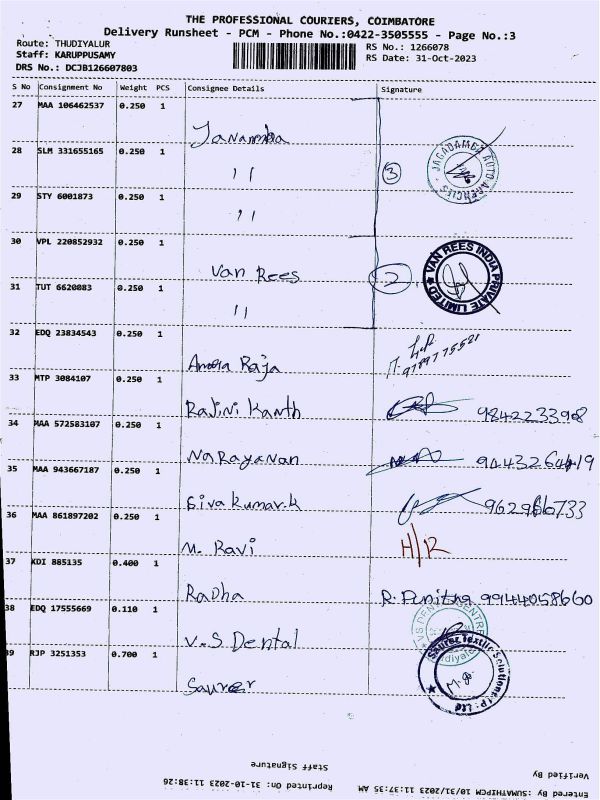 THE PROFESSIONAL COURIERS, COIMBATORE
Delivery Runsheet - PCM - Phone No.:0422-3505555 - Page No.:3
Route: THUDIYALUR
RS No.: 1266078
Staff: KARUPPUSAMY
RS Date: 31-Oct-2023
DRS No.: DCJB126607803
S No Consignment No Weight PCS Consignee Details Signature
27 MAA 106462537 0.250 1
28 SLM 331655165 0.250 1
11 3 JAGADAMBA AUTO AGENCIES
29 STY 6001873 0.250 1
11
30 VPL 220852932 0.250 1
Van Rees 2 VAN REES INDIA PRIVATE LIMITED
31 TUT 6620083 0.250 1
11
32 EDQ 23834543 0.250 1
Raja 9789775521
33 MTP 3084107 0.250 1
Rajini Kanth 9842233908
34 MAA 572583107 0.250 1
Narayanan
35 MAA 943667187 0.250 1
Siva Kumar.k
36 MAA 861897202 0.250 1
M. Ravi H/R
37 KDI 885135 0.400 1
Radha R. Punitha 99444058660
38 EDQ 17555669 0.110 1
V.S Dental
39 RJP 3251353 0.700 1
Saurer Saurer Textile Solutions (P) Ltd
Staff Signature
Verified By
Reprinted On: 31-10-2023 11:38:26
Entered By :SUMATHIPCM 10/31/2023 11:37:35 AM